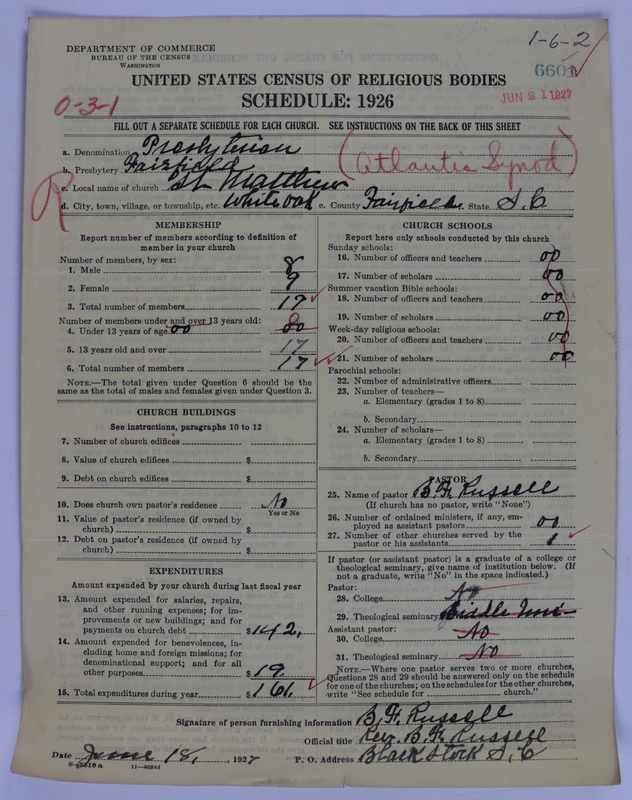 1-6-2
DEPARTMENT OF COMMERCE
BUREAU OF THE CENSUS
WASHINGTON
6601
JUN 21 1927
UNITED STATES CENSUS OF RELIGIOUS BODIES
0-3-1
SCHEDULE: 1926
FILL OUT A SEPARATE SCHEDULE FOR EACH CHURCH. SEE INSTRUCTIONS ON THE BACK OF THIS SHEET
a. Denomination Presbyterian
(Atlantic Synod)
b. Presbytery Fairfield
c. Local name of church St. Matthew
d. City, town, village, or township, etc. White Oak e. County Fairfield State S. C
MEMBERSHIP
Report number of members according to definition of
member in your church
Number of members, by sex:
1. Male 8
2. Female 9
3. Total number of members 17
Number of members under and over 13 years old:
4. Under 13 years of age 00 00 0
5. 13 years old and over 17
6. Total number of members 17
NOTE.—The total given under Question 6 should be
same as the total of males and females given under Question 3.
CHURCH BUILDINGS
See instructions, paragraphs 10 to 12
7. Number of church edifices
8. Value of church edifices $
9. Debt on church edifices $
10. Does church own pastor's residence No
Yes or No
11. Value of pastor's residence (if owned by
church) $
12. Debt on pastor's residence (if owned by
church) $
EXPENDITURES
Amount expended by your church during last fiscal year
13. Amount expended for salaries, repairs,
and other running expenses; for im-
provements or new buildings; and for
payments on church debt $142.
14. Amount expended for benevolences, in-
cluding home and foreign missions; for
denominational support; and for all
other purposes $19.
15. Total expenditures during year $161.
CHURCH SCHOOLS
Report here only schools conducted by this church
Sunday schools:
16. Number of officers and teachers 00
17. Number of scholars 00
Summer vacation Bible schools:
18. Number of officers and teachers 00
19. Number of scholars 00
Week-day religious schools:
20. Number of officers and teachers 00
21. Number of scholars 00
Parochial schools:
22. Number of administrative officers
23. Number of teachers—
a. Elementary (grades 1 to 8)
b. Secondary
24. Number of scholars—
a. Elementary (grades 1 to 8)
b. Secondary
PASTOR
25. Name of pastor B. F. Russell
(If church has no pastor, write "None")
26. Number of ordained ministers, if any, em-
ployed as assistant pastors 00
27. Number of other churches served by the
pastor or his assistants 1
If pastor (or assistant pastor) is a graduate of a college or
theological seminary, give name of institution below. (If
not a graduate, write "No" in the space indicated.)
Pastor:
28. College No
29. Theological seminary Biddle Uni
Assistant pastor:
30. College No
31. Theological seminary No
NOTE.—Where one pastor serves two or more churches,
Questions 28 and 29 should be answered only on the schedule
for one of the churches; on the schedules for the other churches,
write "See schedule for church."
Signature of person furnishing information B. F. Russell
Official title Rev. B. F. Russell
Date June 18, 1927 P. O. Address Blackstock S. C